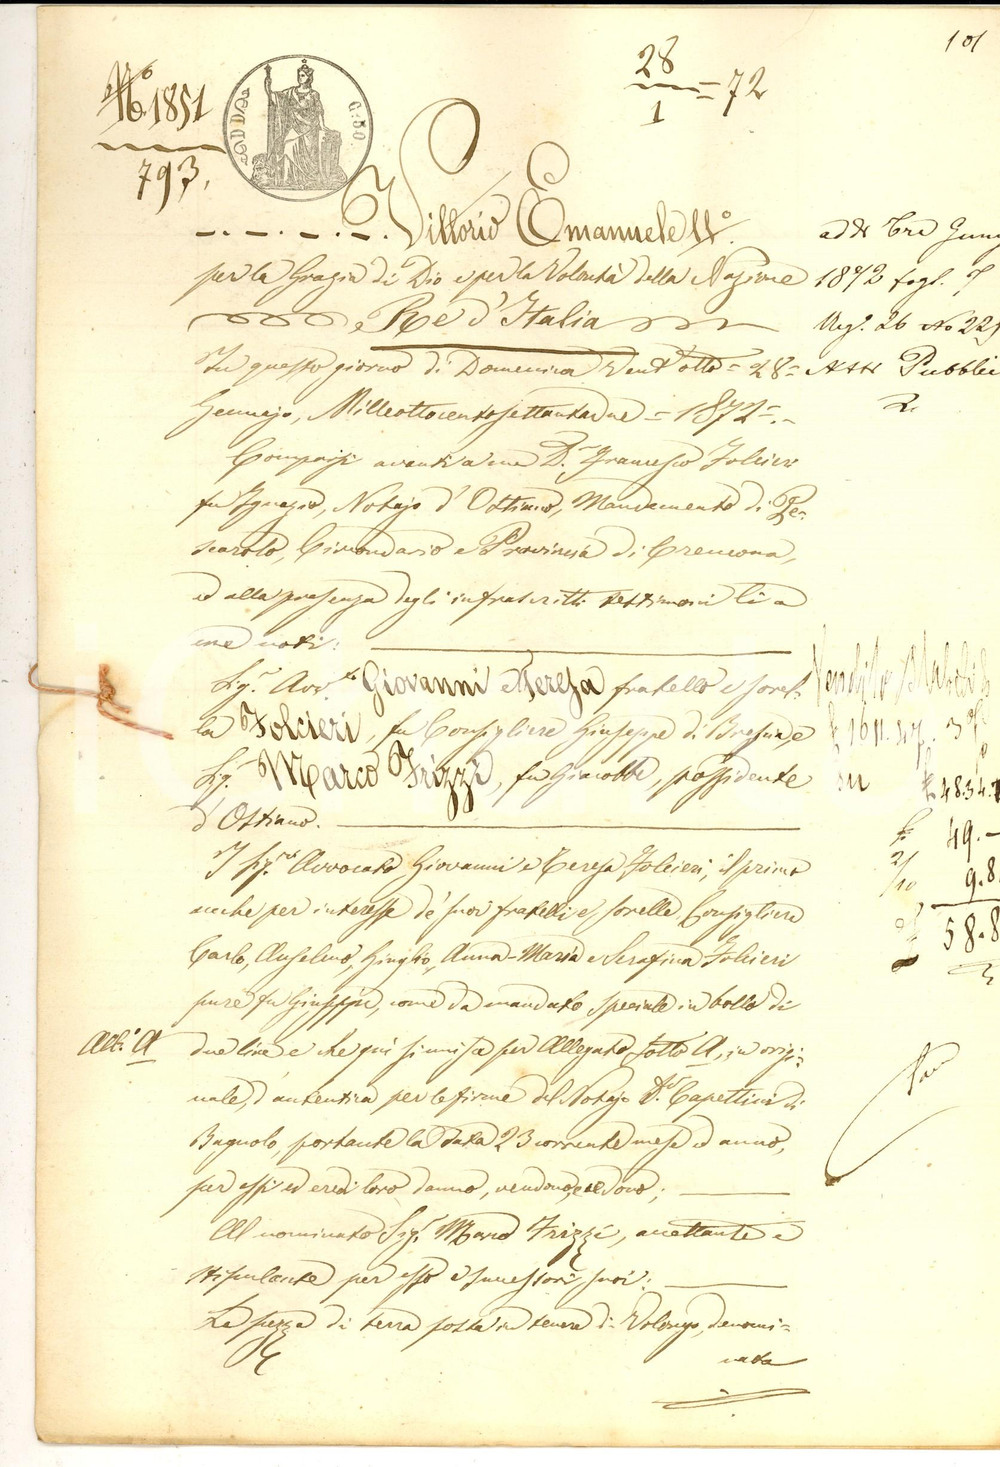 101
28/1 = 72
No 1851
793.
Vittorio Emanuele IIº.
per la Grazia di Dio e per la Volontà della Nazione
Re d'Italia
In questo giorno di Domenica Vent'otto = 28 =
Gennajo, Milleottocentosettantadue = 1872 =.
Comparsi avanti a me Dr. Francesco Folcieri
fu Ignazio, Notajo d'Ostiano, Mandamento di Pe-
scarolo, Circondario e Provincia di Cremona,
ed alla presenza degli infrascritti testimoni li a
me noti:
Sigr. Avv.to Giovanni e Teresa fratello e sorel-
la Folcieri, fu Consigliere Giuseppe di Brescia, e
Sigr. Marco Frizzi, fu Giacobbe, possidente
d'Ostiano.
I Sigri Avvocato Giovanni e Teresa Folcieri, il primo
anche per interesse de' suoi fratelli e sorelle Consigliere
Carlo, Anselmo, Giuglio, Anna-Maria e Serafina Folcieri
pure fu Giuseppe, come da mandato speciale in bollo di
due lire e che qui si unisce per Allegato sotto A, in origi-
nale, d'autentica per le firme del Notajo Dr. Capettini di
Bagnolo, portante la data 23 corrente mese ed anno,
per essi ed eredi loro danno, vendono, cedono;
Al nominato Sigr. Marco Frizzi, accettante e
stipulante per esso e successori suoi:
La pezza di terra posta in tenere di Volongo, denomi-
nata
All.o A
1872 fogl. 7
Atti Pubblici
1611.
4834.
49.-
2/10 9.8
58.8